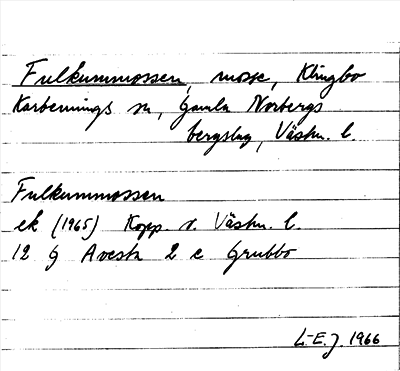 Fulkummossen, mosse, Klingbo
Karbennings sn, Gamla Norbergs
bergslag, Västm. l.
Fulkummossen
ek (1965) Kopp. o. Västm. l.
12 G Avesta 2 c Grubbo
L-E.J. 1966